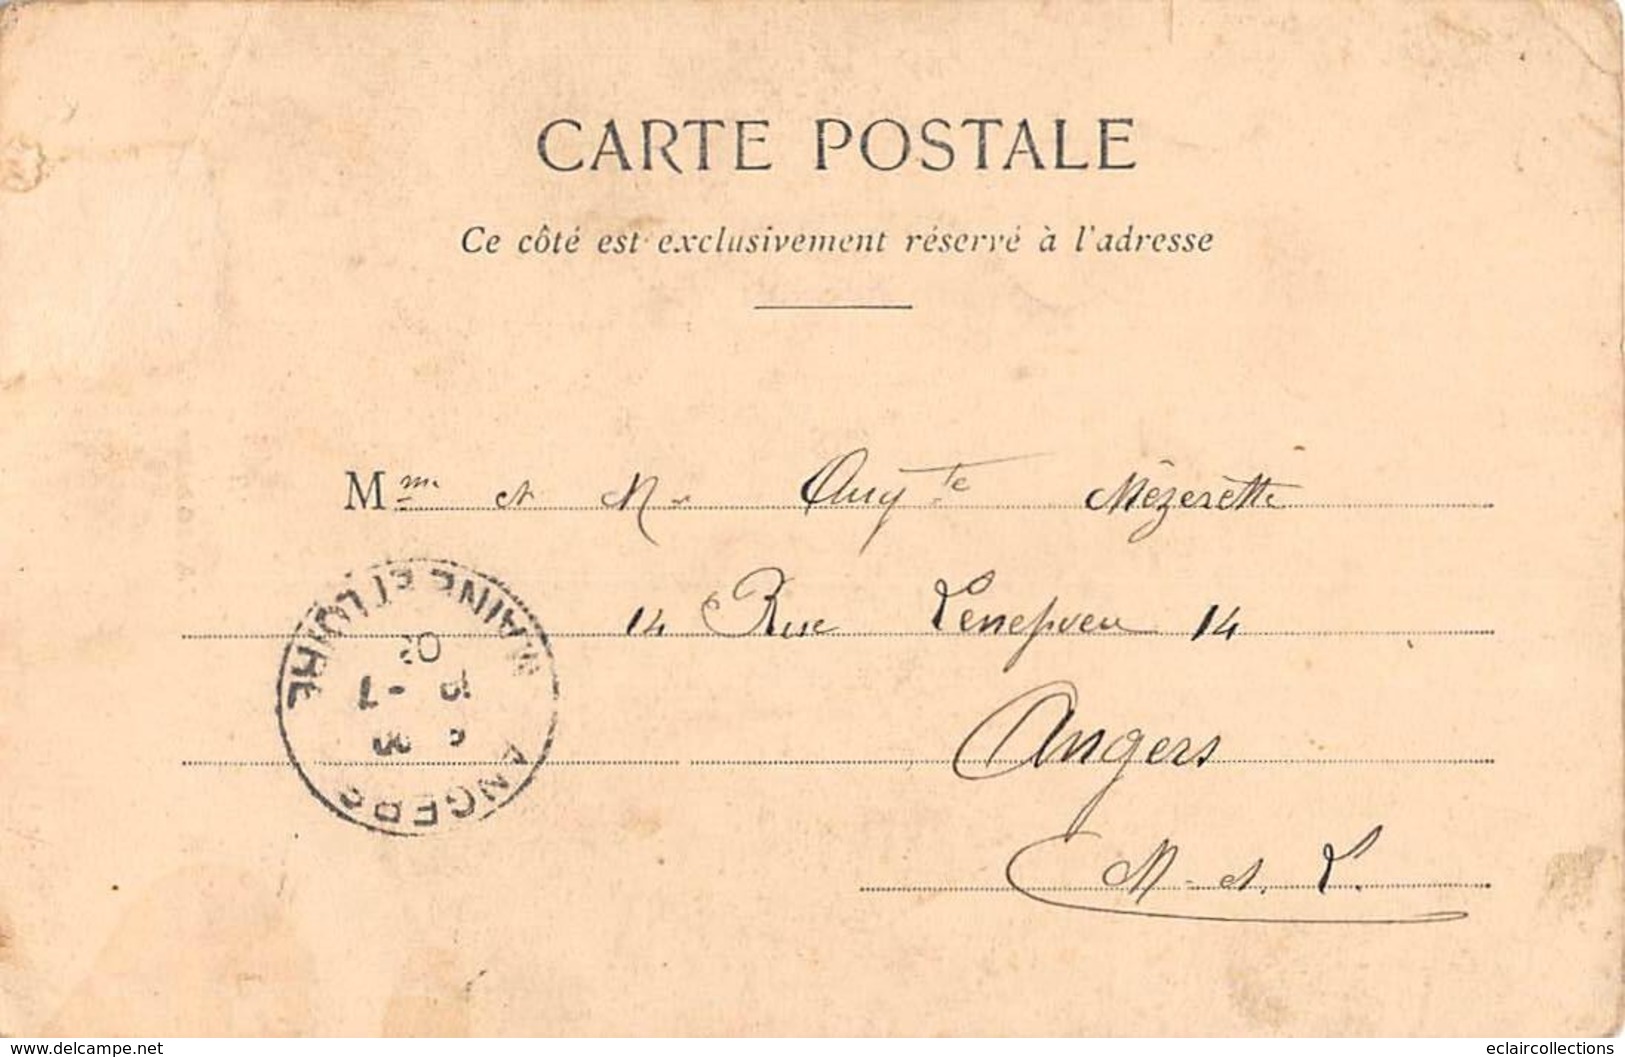 CARTE POSTALE
Ce côté est exclusivement réservé à l'adresse
Mme et Mr Augte Mézerette
14 Rue Lenepveu 14
Angers
M-et-L.
MAINE ET LOIRE
03
-7
ANGERS
www.delcampe.net
eclaircollections